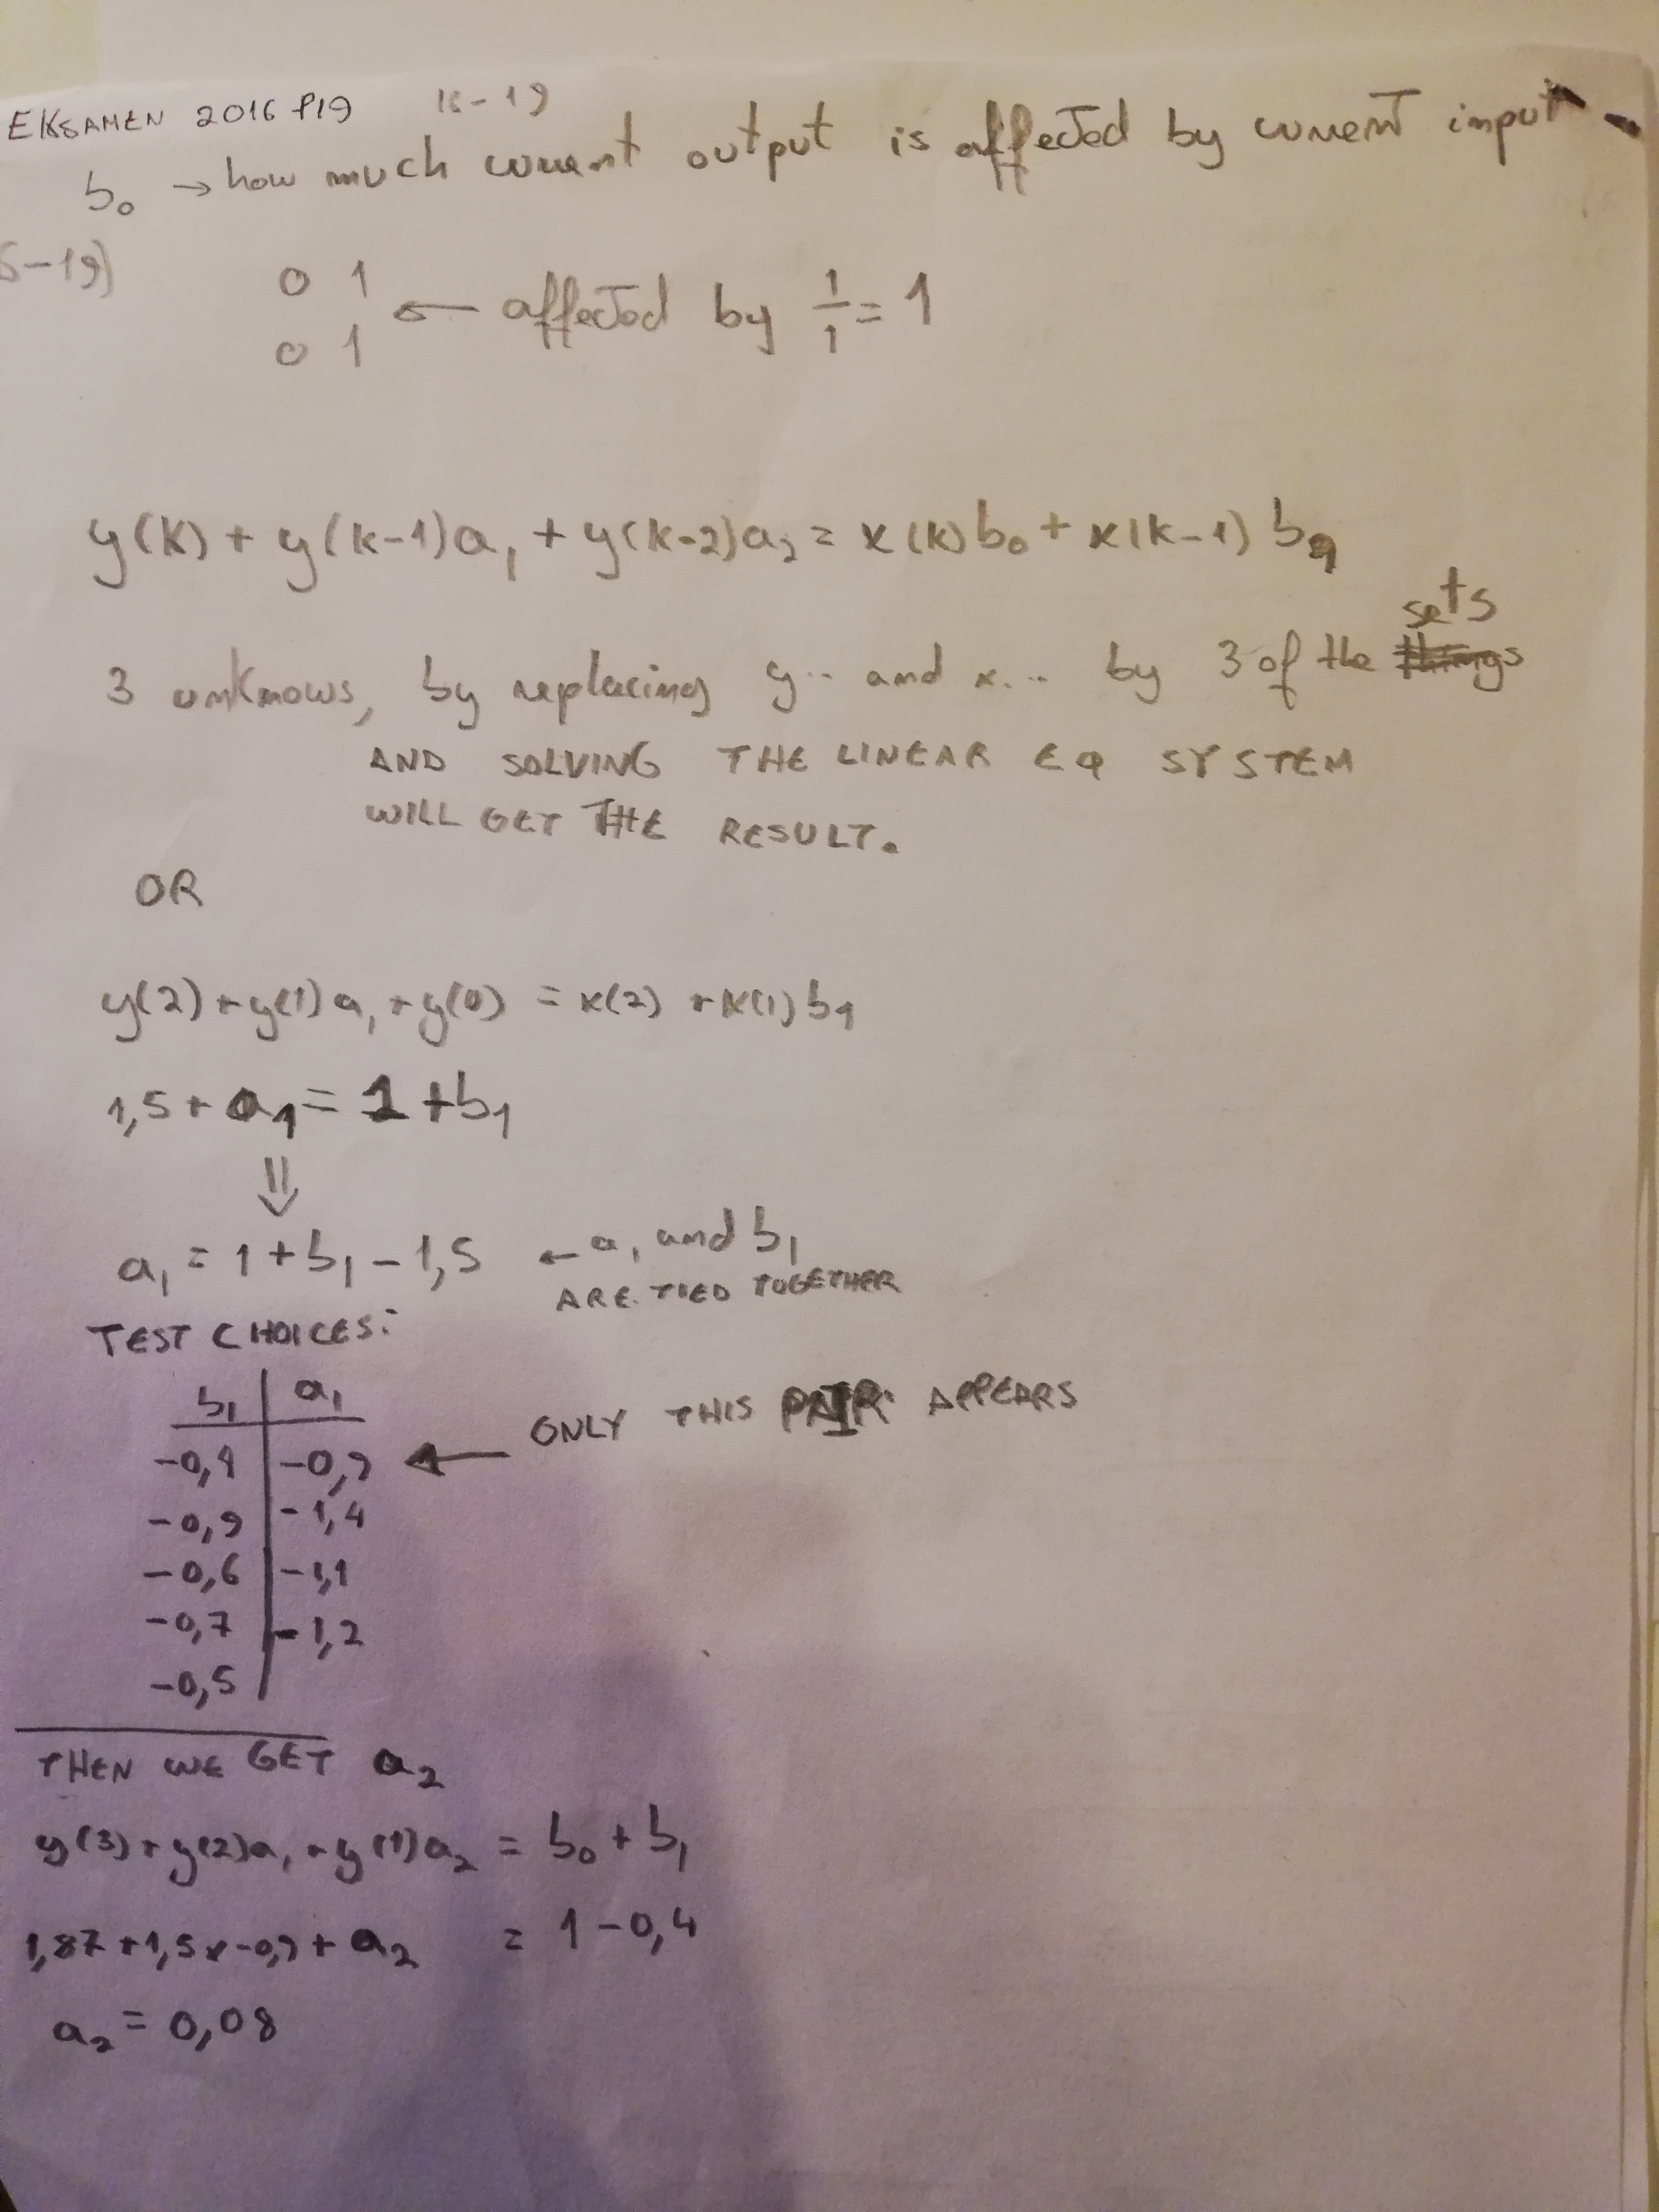 EKSAMEN 2016 P19 16-19
b₀ → how much current output is affected by current input
6-19)
0 1
0 1
← affected by 1/1 = 1
y(k) + y(k-1)a₁ + y(k-2)a₂ = x(k)b₀ + x(k-1) b₁
sets
3 unknows, by replacing y.. and x... by 3 of the things
AND SOLVING THE LINEAR EQ SYSTEM
WILL GET THE RESULT.
OR
y(2) + y(1)a₁ + y(0) = x(2) + x(1)b₁
1,5 + a₁ = 1 + b₁
⇓
a₁ = 1 + b₁ - 1,5 ← a₁ and b₁
ARE TIED TOGETHER
TEST CHOICES:
b₁ | a₁
-0,4 | -0,9 ← ONLY THIS PAIR APPEARS
-0,9 | -1,4
-0,6 | -1,1
-0,7 | -1,2
-0,5 |
THEN WE GET a₂
y(3) + y(2)a₁ + y(1)a₂ = b₀ + b₁
1,87 + 1,5x-0,9 + a₂ = 1 - 0,4
a₂ = 0,08